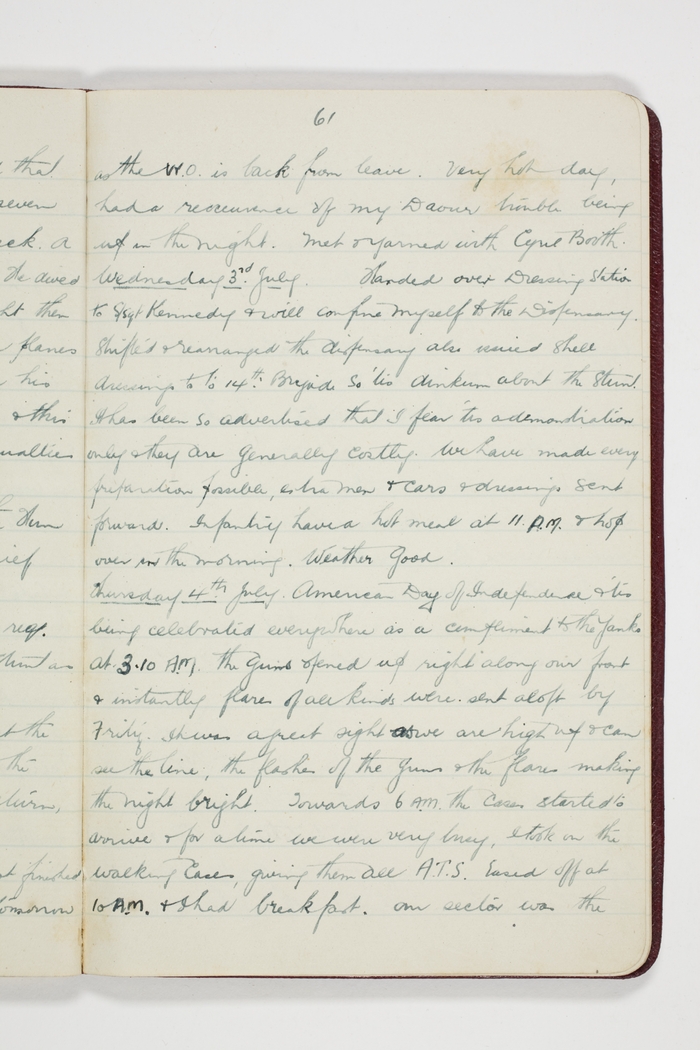 61
as the W.O. is back from leave. Very hot day,
had a reoccurence of my Daour trouble being
up in the night. Met & yarned with Cyril Booth.
Wednesday 3rd July. Handed over Dressing Station
to S/Sgt Kennedy & will confine myself to the Dispensary.
Shifted & rearranged the dispensary also issued shell
dressings to to 14th Brigade so 'tis dinkum about the Stunt.
It has been so advertised that I fear 'tis a demonstration
only & they are generally costly. We have made every
preparation possible, extra men & cars & dressings sent
forward. Infantry have a hot meal at 11 P.M. & hop
over in the morning. Weather Good.
Thursday 4th July. American Day of Independence & 'tis
being celebrated everywhere as a compliment to the Yanks
at 3.10 AM. the Guns opened up right along our front
& instantly flares of all kinds were sent aloft by
Fritz. It was a great sight as we are high up & can
see the line, the flashes of the Guns & the flares making
the night bright. Towards 6 AM. the Cases started to
arrive & for a time we were very busy, I took on the
walking Cases, giving them all A.T.S. Eased off at
10 A.M. & I had breakfast. our sector was the
that
seven
a
He dived
then
planes
his
& this
the
the
finished
tomorrow